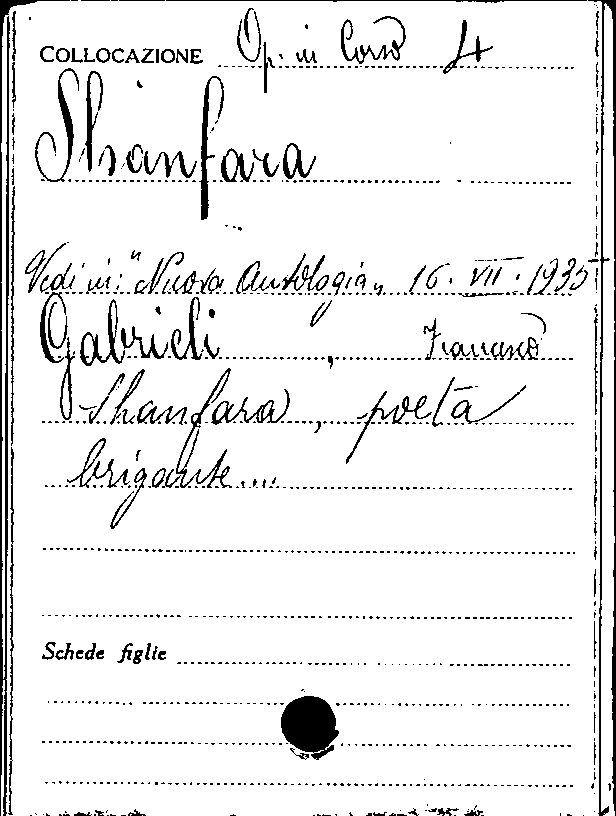 COLLOCAZIONE Op. in Corso 4
Shanfara
Vedi in: "Nuova Antologia„ 16. VII. 1935
Gabrieli, Francesco
Shanfara, poeta
brigante....
Schede figlie